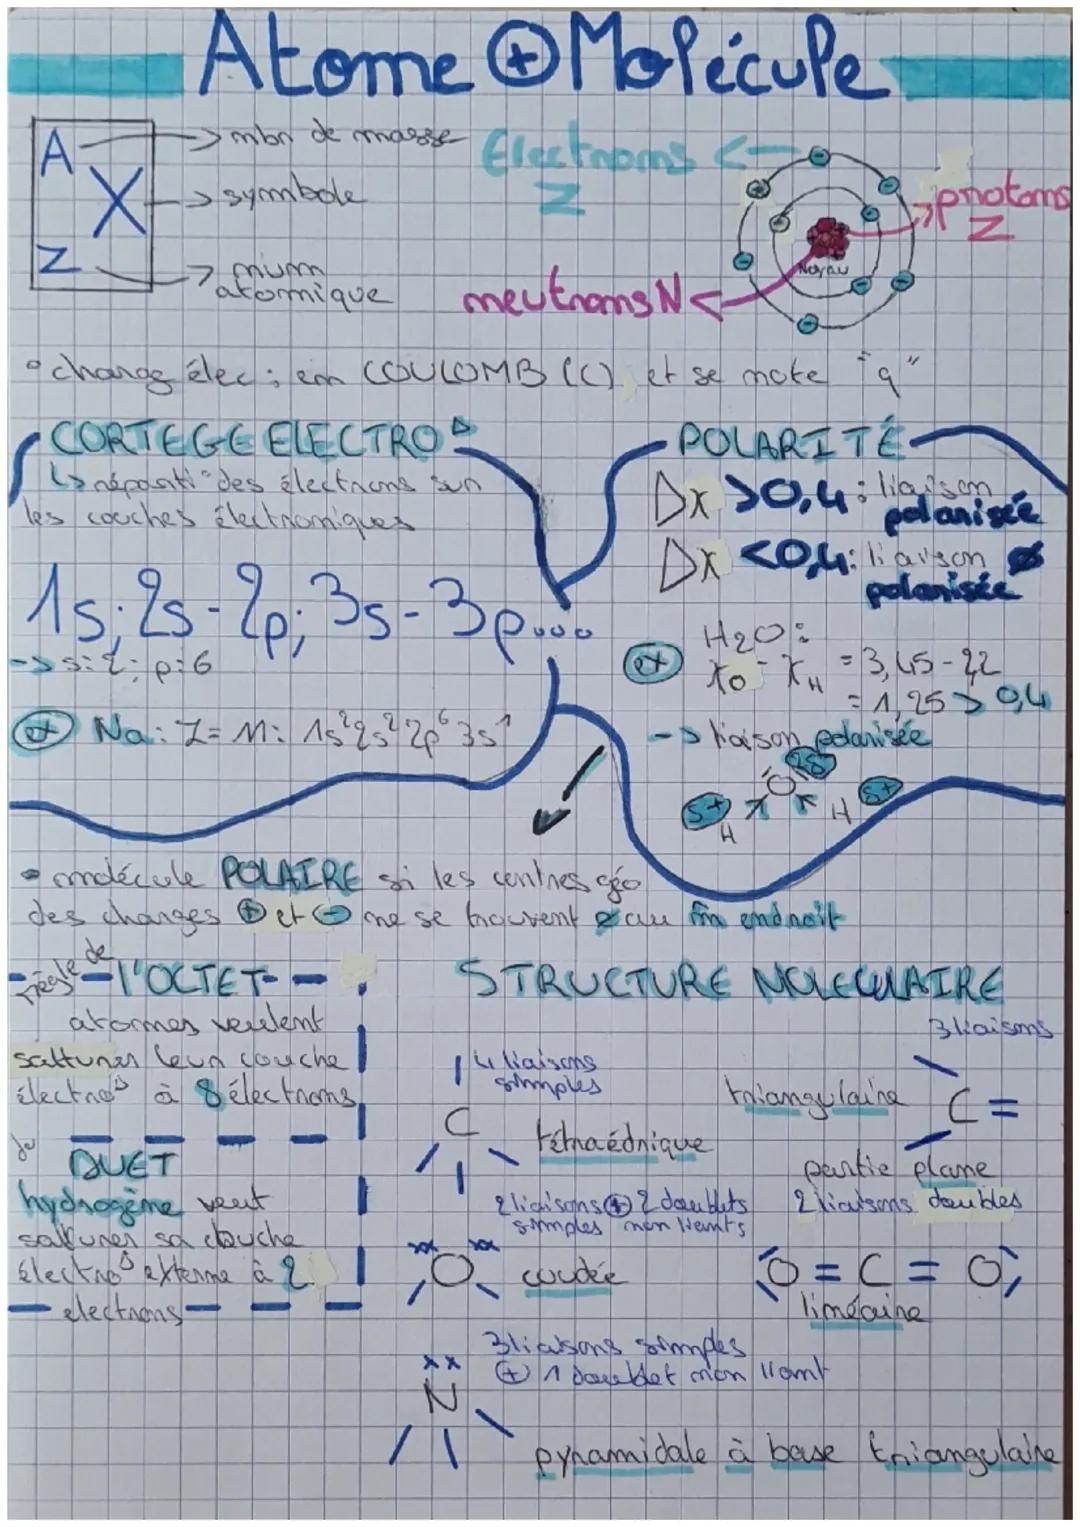 Atome ⊕ Molécule
A → mbr de masse
X → symbole
Z → num atomique
Electrons Z
protons Z
Noyau
neutrons N
• charge élec : en COULOMB (C) et se note "q"
CORTEGE ELECTRO
↳ réparti° des électrons sur
les couches électroniques
1s; 2s-2p; 3s-3p...
-> s:2; p:6
ex Na: Z=11: 1s²2s²2p⁶3s¹
POLARITÉ
Δχ >0,4: liaison
polarisée
Δχ <0,4: liaison ø
polarisée
ex H2O:
χO - χH = 3,45-2,2
= 1,25 > 0,4
-> liaison polarisée
2δ-
O
δ+ H H δ+
• molécule POLAIRE si les centres géo
des charges ⊕ et ⊖ ne se trouvent au m̂ endroit
règle de l'OCTET
atomes veulent
satturer leur couche
électro à 8 électrons
du DUET
hydrogène veut
satturer sa couche
électro externe à 2
electrons
STRUCTURE MOLECULAIRE
4 liaisons
simples
C
tétraédrique
3 liaisons
triangulaire C =
partie plane
2 liaisons ⊕ 2 doublets
simples non liants
xx xx
O coudée
2 liaisons doubles
O = C = O
linéaire
3 liaisons simples
⊕ 1 doublet non liant
xx
N
pyramidale à base triangulaire